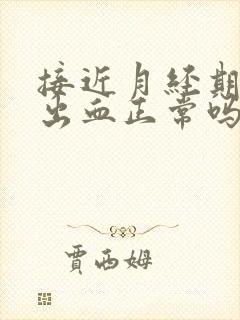 接近月经期
出血正常吗
贾西姆